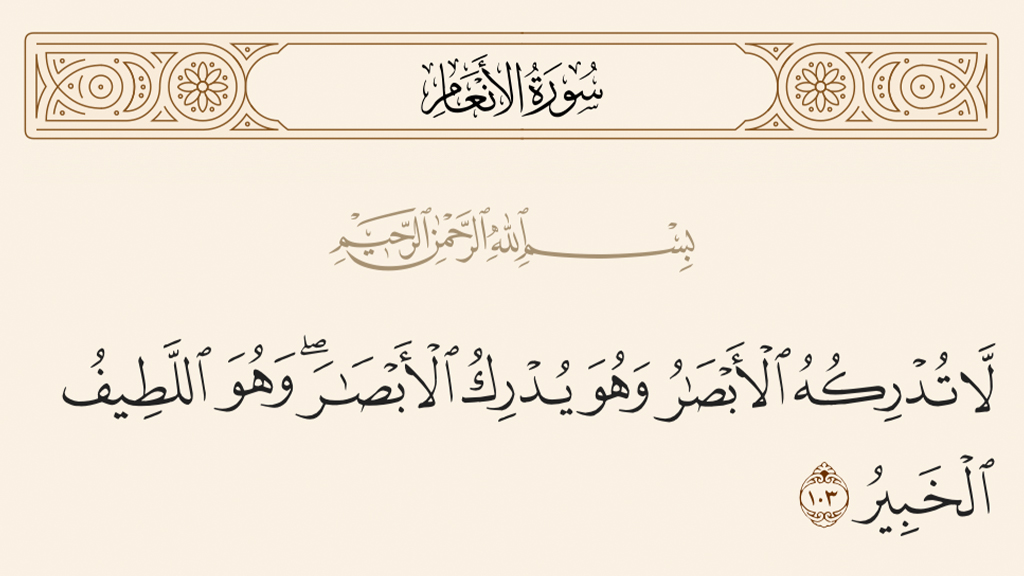 سُورَةُ الأَنْعَامِ
بِسْمِ ٱللَّهِ ٱلرَّحْمَٰنِ ٱلرَّحِيمِ
لَّا تُدْرِكُهُ ٱلْأَبْصَٰرُ وَهُوَ يُدْرِكُ ٱلْأَبْصَٰرَ ۖ وَهُوَ ٱللَّطِيفُ
ٱلْخَبِيرُ ١٠٣